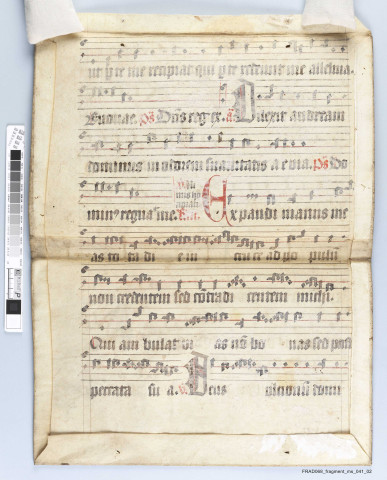 ut p te me recipiat qui p te redemit me alleluia.
Euouae. ps Dns reg ex. a Dilexit andream
dominus in odorem suavitatis aevia. ps Do
minus regna me. Expandi manus me
as to ta di e in cru ce ad po pulu
non credentem sed cotra di centem michi.
Qui am bulat vi as no bo nas sed post
peccata su a. v Deus ulcionu domi
FRAD068_fragment_ms_041_02